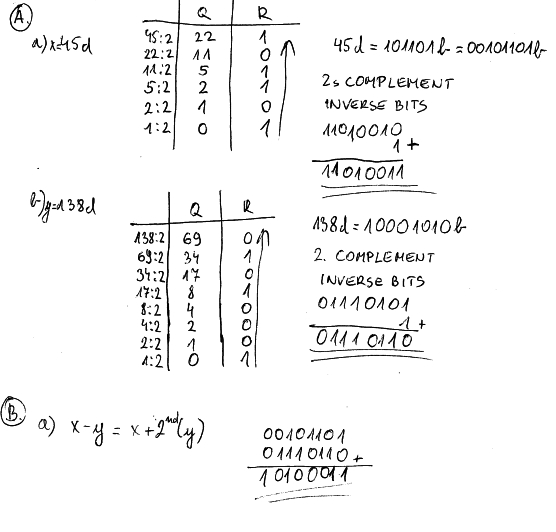 A.
a) x=45d
Q R
45:2 22 1
22:2 11 0
11:2 5 1
5:2 2 1
2:2 1 0
1:2 0 1
45d = 101101b = 00101101b
2s COMPLEMENT
INVERSE BITS
11010010
1+
11010011
b) y=138d
Q R
138:2 69 0
69:2 34 1
34:2 17 0
17:2 8 1
8:2 4 0
4:2 2 0
2:2 1 0
1:2 0 1
138d = 10001010b
2. COMPLEMENT
INVERSE BITS
01110101
1+
01110110
B.
a) x-y = x+2nd(y)
00101101
01110110+
10100011